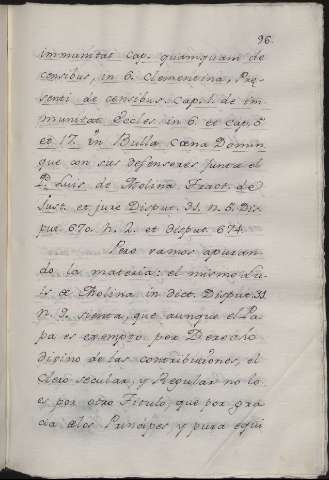 96.
immunitat cap. quamquam de
censibus, in 6. Clementina, Præ-
senti de censibus. cap. 1. de im-
munitat Eccles in 6 et cap. 5
et 17. in Bulla cœna Domin
que con sus defensores junta el
P. Luis de Molina Tract. de
Just. et jure Disput. 31. n. 5. Dis-
put 670. n. 2. et disput 674.
Pero vamos apuran-
do la materia: el mismo Lu-
is de Molina in dict. Disput. 31
n. 3. sienta, que aunque el Pa-
pa es exempto por Derecho
divino de las contribuciones, el
clero secular, y Regular no lo
es por otro Titulo, que por gra-
cia de los Principes y pura equi